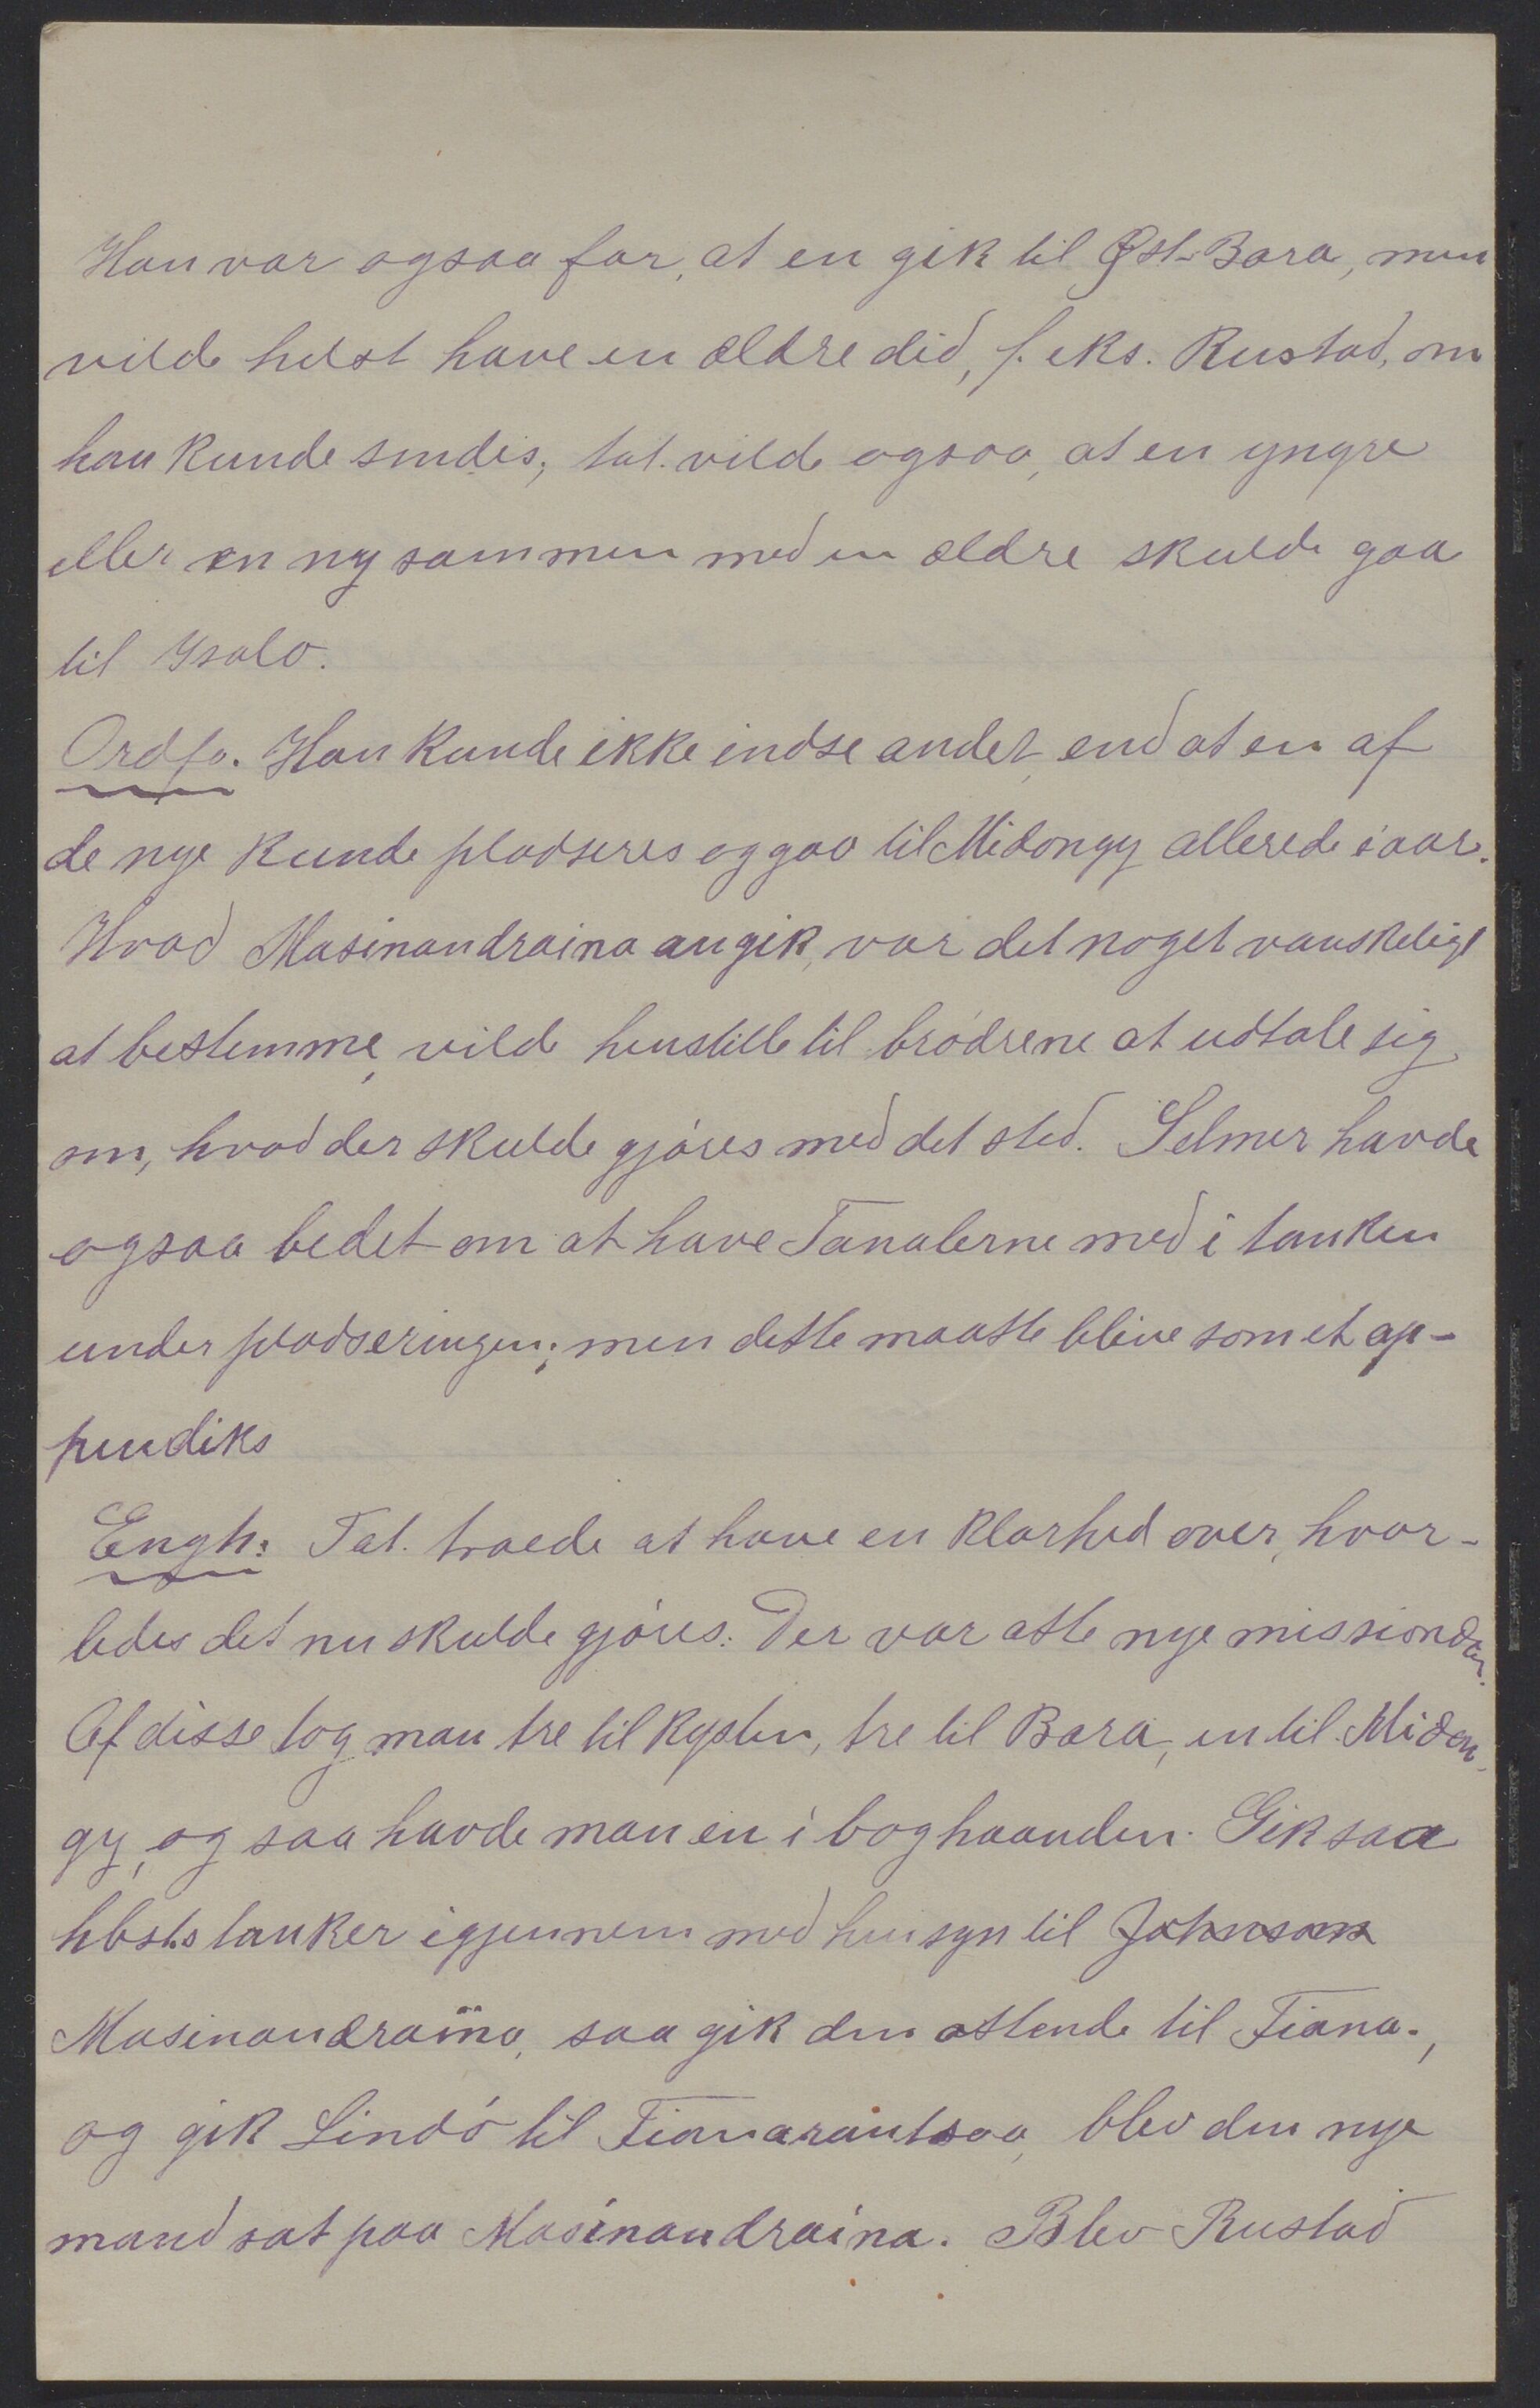 Han var ogsaa for, at en gik til Øst-Bara, men
vilde helst have en ældre did, f. eks. Rustad, om
han kunde sendes; tal. vilde ogsaa, at en yngre
eller en ny sammen med en ældre skulde gaa
til Ysalo.
Ordfø. Han kunde ikke indse andet, end at en af
de nye kunde pladseres og gaa til Midongy allerede iaar.
Hvad Masinandraina angik, var det noget vanskeligt
at bestemme, vilde henstille til brødrene at udtale sig
om, hvad der skulde gjøres med det sted. Selmer havde
ogsaa bedet om at have Tanalerne med i tanken
under pladseringen; men dette maatte blive som et ap-
pendiks
Engh: Tal. troede at have en klarhed over, hvor-
ledes det nu skulde gjøres: Der var atte nye missionær.
Af disse tog man tre til kysten, tre til Bara, en til Midon-
gy, og saa havde man en i baghaanden. Gik saa
hbsts tanker igjennem med hensyn til Johnsons
Masinandraina, saa gik den ottende til Fiana.,
og gik Lindø til Fianarantsoa, blev den nye
mand sat paa Masinandraina. Blev Rustad